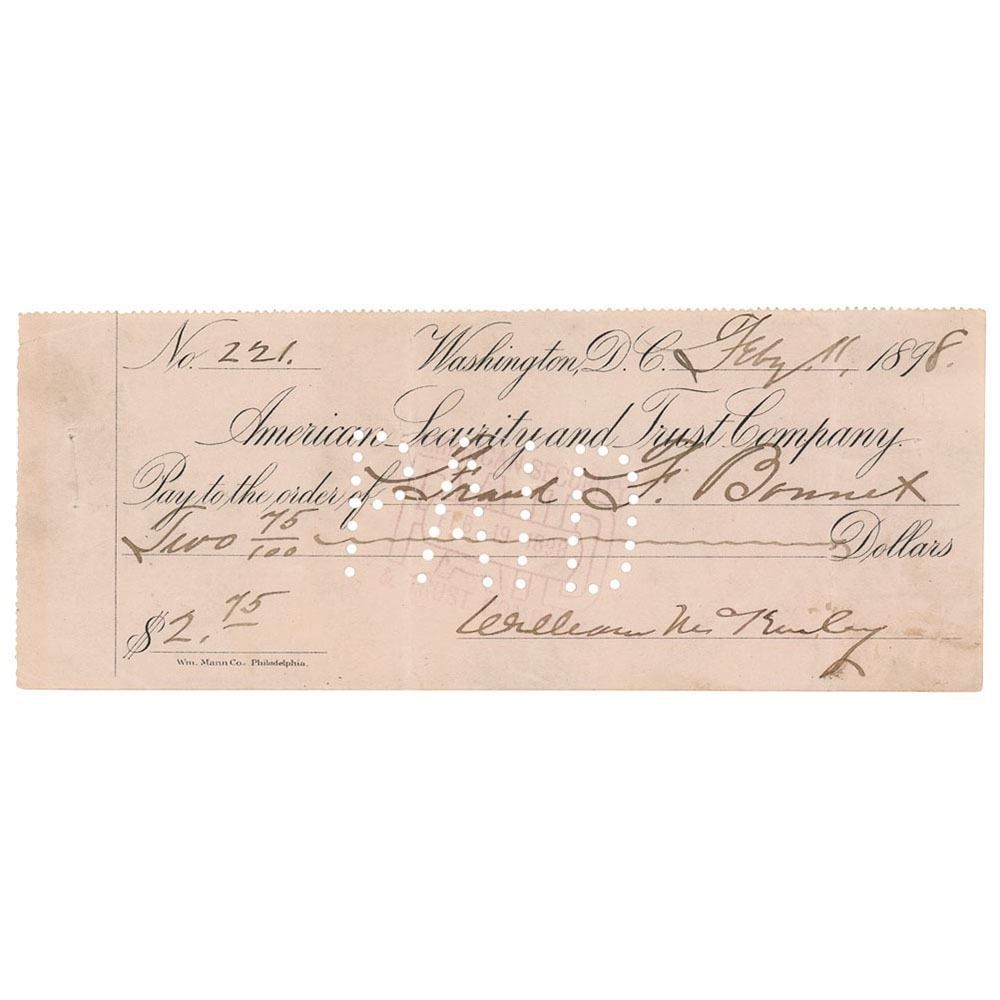 No. 221. Washington, D.C. Feby. 11, 1898.
American Security and Trust Company.
Pay to the order of Frank F. Bonnet
Two 75/100 Dollars
$2.75 William McKinley
Wm. Mann Co. Philadelphia.
PAID
FEB 19 1898
& TRUST